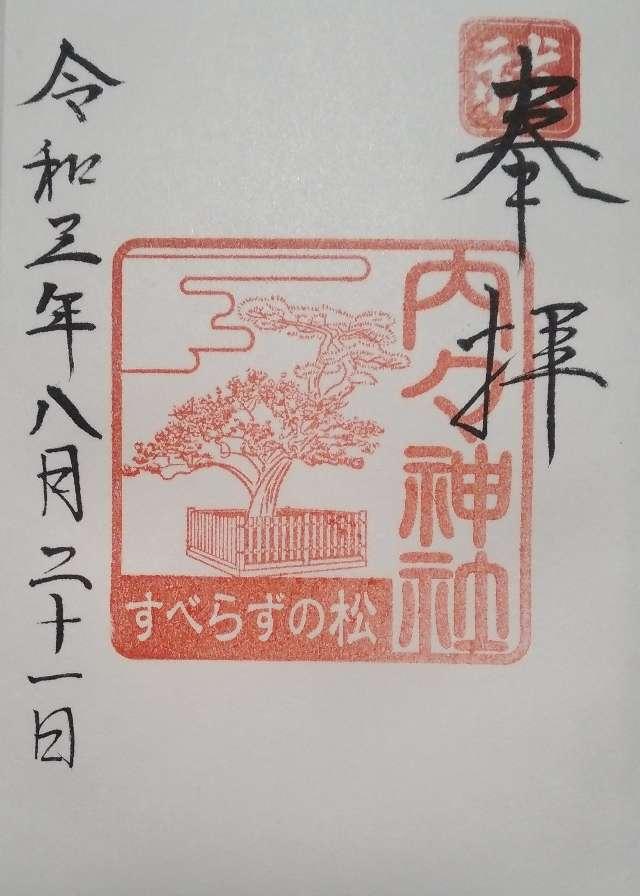 奉拝
内々神社
すべらずの松
令和三年八月二十一日